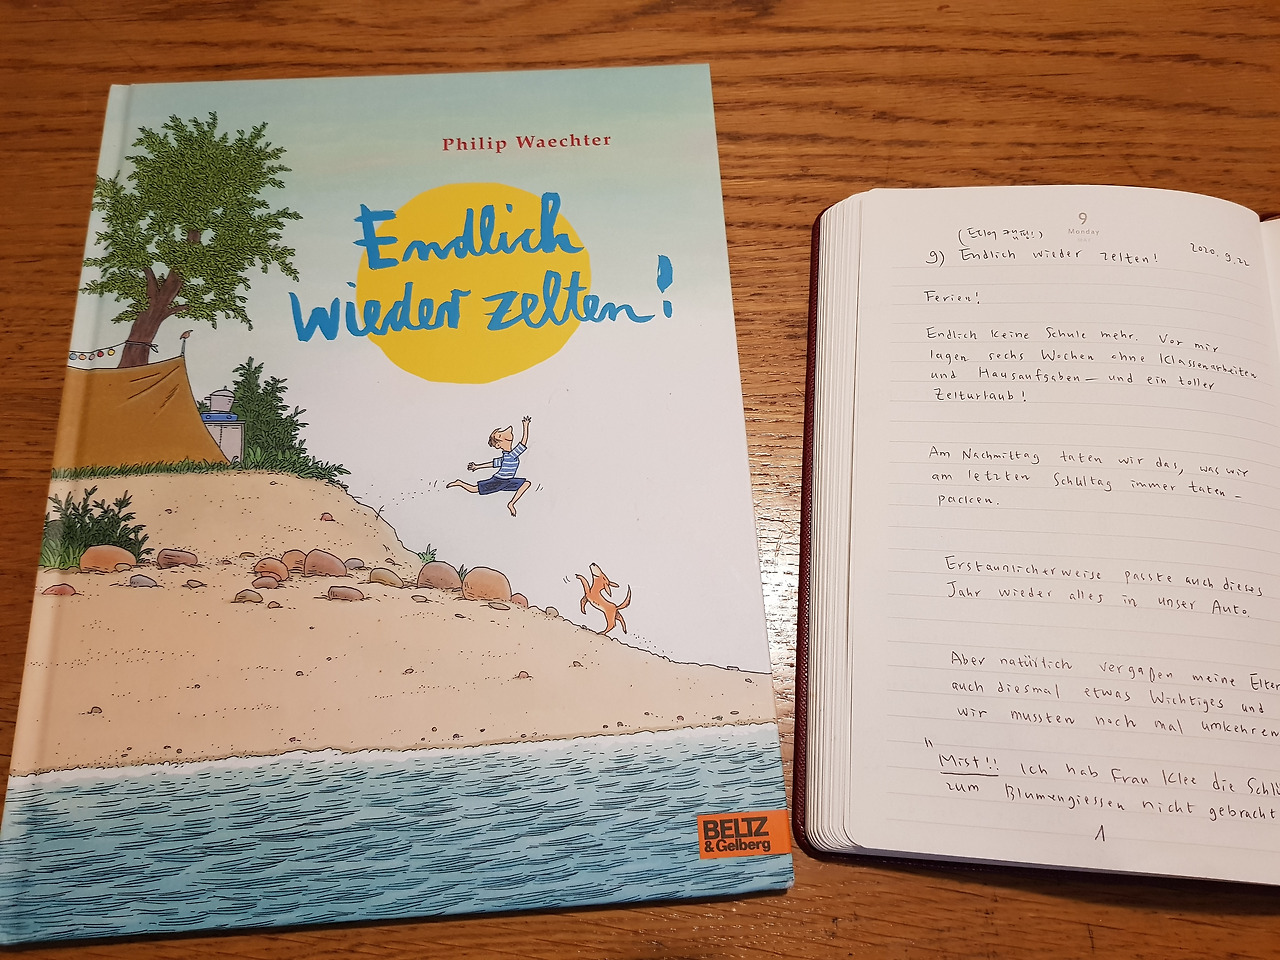 Philip Waechter
Endlich
wieder zelten!
BELTZ
& Gelberg
9
Monday
9) Endlich wieder zelten! 2020. 9. 22
Ferien!
Endlich keine Schule mehr. Vor mir
lagen sechs Wochen ohne Klassenarbeiten
und Hausaufgaben – und ein toller
Zelturlaub!
Am Nachmittag taten wir das, was wir
am letzten Schultag immer taten –
packen.
Erstaunlicherweise passte auch dieses
Jahr wieder alles in unser Auto.
Aber natürlich vergaßen meine Elter
auch diesmal etwas Wichtiges und
wir mussten noch mal umkehren
"Mist!! Ich hab Frau Klee die Schlü
zum Blumengiessen nicht gebracht
1